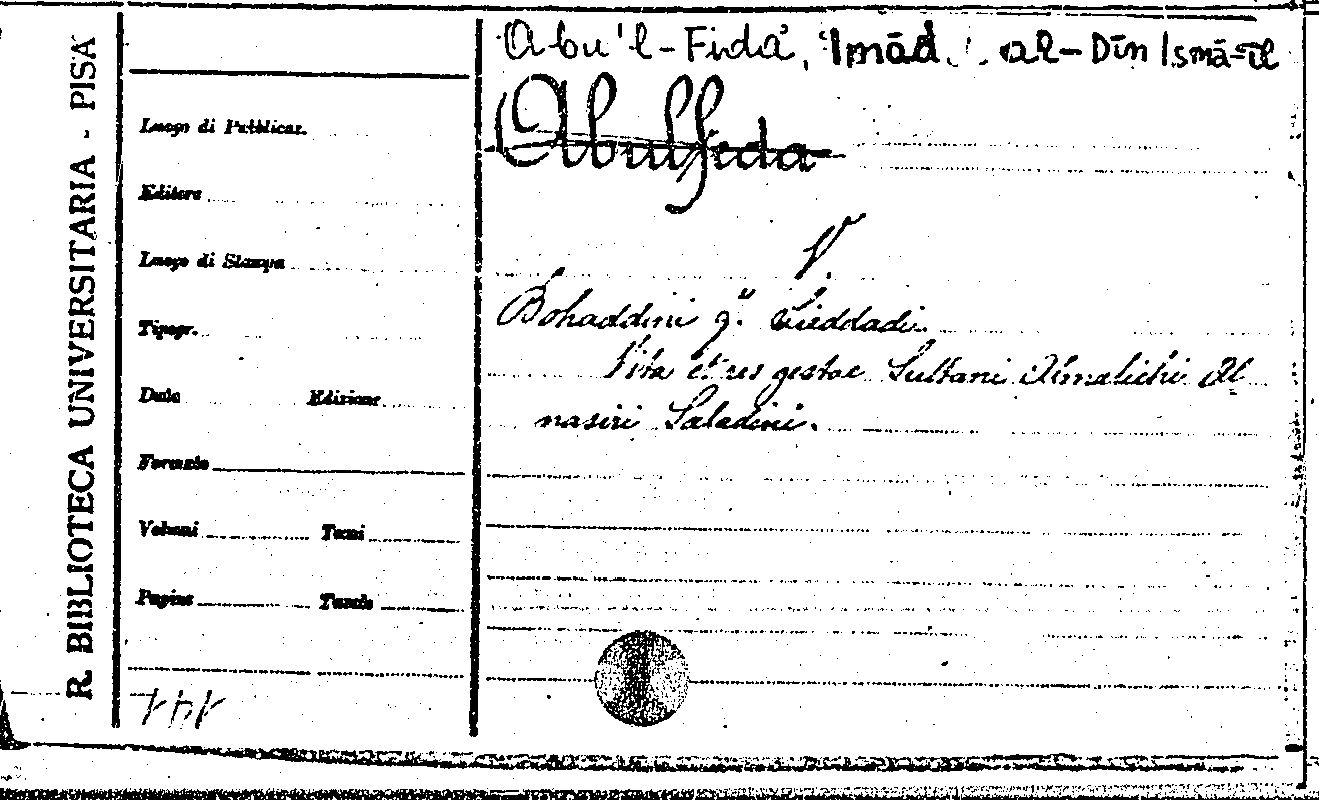 R. BIBLIOTECA UNIVERSITARIA - PISA
Luogo di Pubblicaz.
Editore
Luogo di Stampa
Tipogr.
Data Edizione
Formato
Volumi Tomi
Pagine Tavole
Abu'l-Fidā', 'Imād al-Dīn Ismā'īl
Abulfeda
V.
Bohaddini
Vita et res gestae Sultani Almalichi Al
nasiri Saladini.